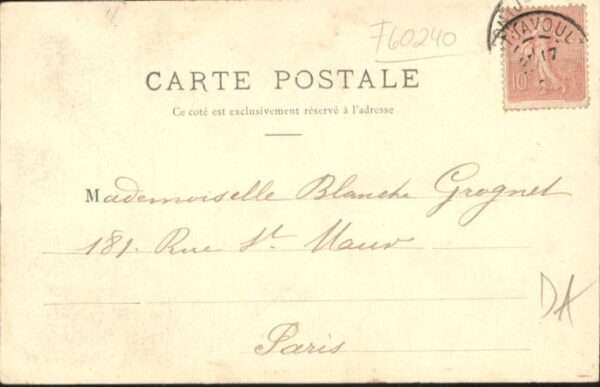 F60240
TAVOUL
17
10
CARTE POSTALE
Ce coté est exclusivement réservé à l'adresse
Mademoiselle Blanche Grognet
181. Rue St. Maur
DA
Paris